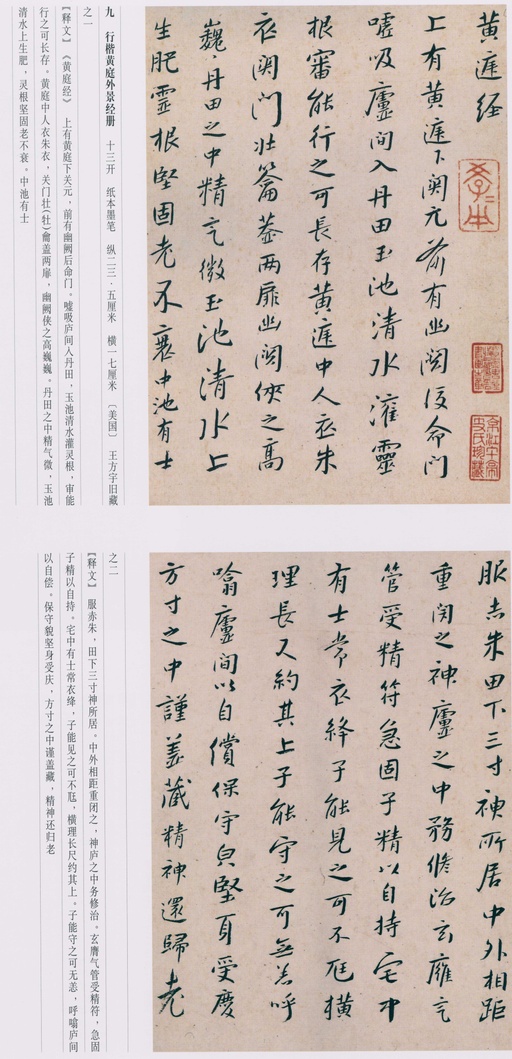 黄庭经
上有黄庭下関元前有幽闕後命门
嘘吸廬间入丹田玉池清水灌靈
根審能行之可長存黄庭中人衣朱
衣関门壮籥盖两扉幽闕俠之高
巍々丹田之中精气微玉池清水上
生肥靈根堅固老不衰中池有士
九 行楷黄庭外景经册 十三开 纸本墨笔 纵二三·五厘米 横一七厘米 〔美国〕 王方宇旧藏
之一
【释文】 《黄庭经》 上有黄庭下关元，前有幽阙后命门。嘘吸庐间入丹田，玉池清水灌灵根，审能
行之可长存。黄庭中人衣朱衣，关门壮(牡)龠盖两扉，幽阙侠之高巍巍。丹田之中精气微，玉池
清水上生肥，灵根坚固老不衰。中池有士
服赤朱田下三寸神所居中外相距
重闭之神廬之中務修治玄膺气
管受精符急固子精以自持宅中
有士常衣绛子能見之可不尫横
理長尺约其上子能守之可無恙呼
噏廬间以自償保守皃堅身受慶
方寸之中謹盖藏精神還歸老
之二
【释文】 服赤朱，田下三寸神所居。中外相距重闭之，神庐之中务修治。玄膺气管受精符，急固
子精以自持。宅中有士常衣绛，子能见之可不尫，横理长尺约其上。子能守之可无恙，呼噏庐间
以自偿。保守貌坚身受庆，方寸之中谨盖藏，精神还归老